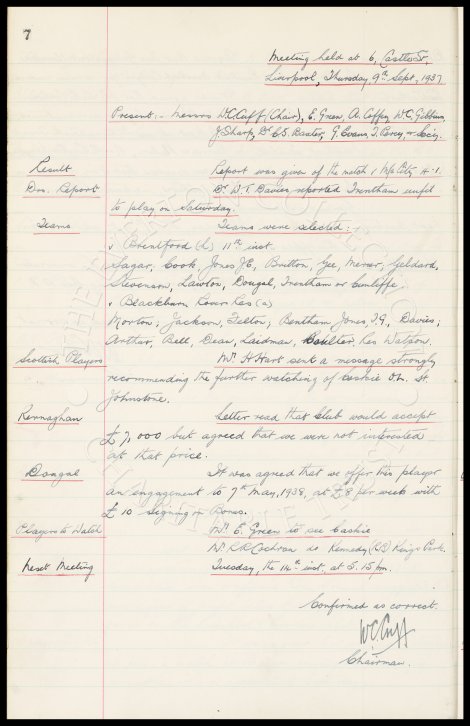 7
Meeting held at 6, Castle St,
Liverpool, Thursday, 9th Sept, 1937
Present:- Messrs W.C. Cuff (Chair), E. Green, A. Coffey, W.C. Gibbins,
J. Sharp, Dr C.S. Baxter, G. Evans, T. Percy, & Secy.
Result Report was given of the match v M/c City H.-1.
Drs. Report Dr W.T. Davies reported Trentham unfit
to play on Saturday.
Teams Teams were selected:
v Brentford (L) 11th inst.
Sagar, Cook, Jones J.E, Britton, Gee, Mercer, Geldard,
Stevenson, Lawton, Dougal, Trentham or Cunliffe.
v Blackburn Rovers Res (a)
Morton, Jackson, Felton, Bentham, Jones, T.G., Davies,
Arthur, Bell, Dean, Laidman, Coulter, Res Watson.
Scottish Players Mr H. Hart sent a message strongly
recommending the further watching of Caskie O.L. St
Johnstone.
Kernaghan Letter read that Club would accept
£7,000 but agreed that we were not interested
at that price.
Dougal It was agreed that we offer this player
an engagement to 7th May, 1938, at £8 per week with
£10 signing on Bonus.
Players to Watch Mr E. Green to see Caskie
Mr R.R. Cochran do Kennedy (RB) Kings Park.
Next Meeting Tuesday, the 14th inst, at 5.15 pm.
Confirmed as correct.
WC Cuff
Chairman.